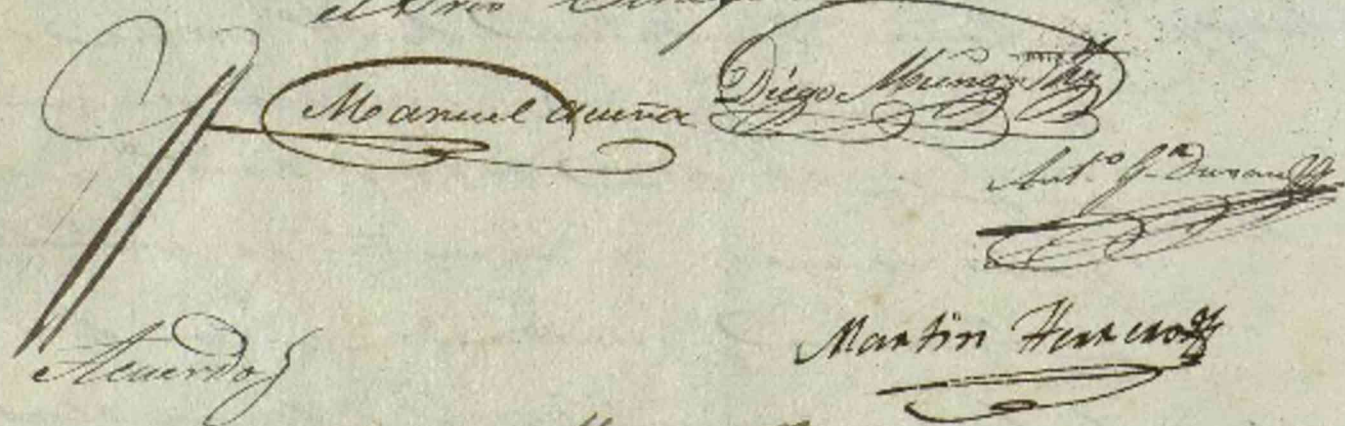 el
Manuel Acuña
Diego Munoz
Ant.º G.ª Duran
Martin Herrero
Acuerdo